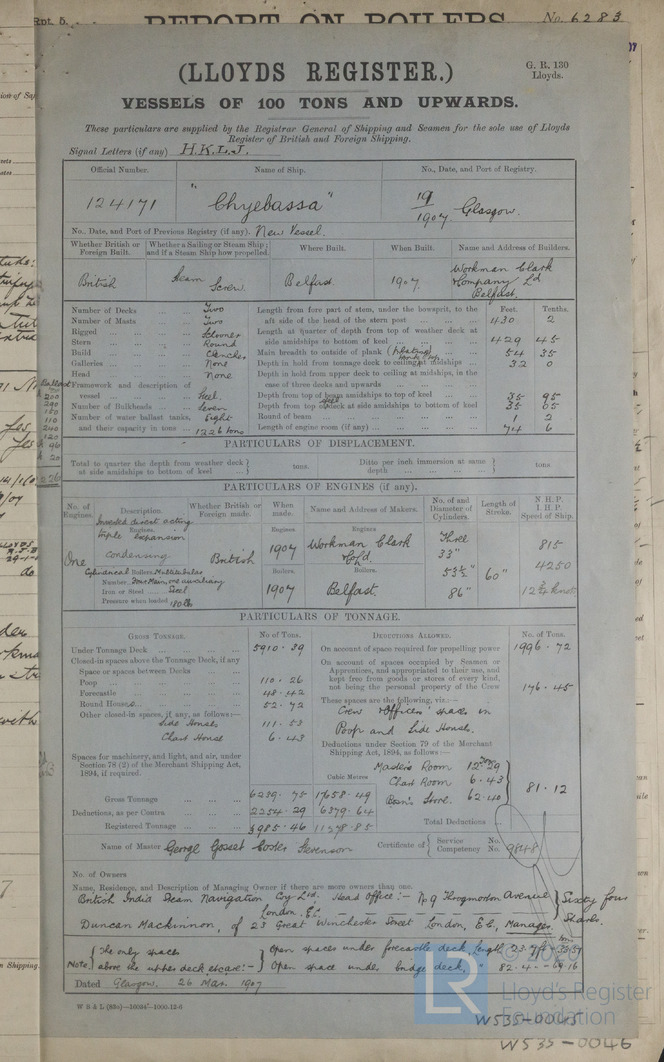 Rpt. 5.
REPORT ON BOILERS.
No. 6283
(LLOYDS REGISTER.)
G. R. 130
Lloyds.
VESSELS OF 100 TONS AND UPWARDS.
These particulars are supplied by the Registrar General of Shipping and Seamen for the sole use of Lloyds
Register of British and Foreign Shipping.
Signal Letters (if any) H.K.L.J.
Official Number. Name of Ship. No., Date, and Port of Registry.
124171 "Chyebassa" 19/1907 Glasgow.
No., Date, and Port of Previous Registry (if any). New Vessel.
Whether British or Foreign Built. Whether a Sailing or Steam Ship; and if a Steam Ship how propelled. Where Built. When Built. Name and Address of Builders.
British Steam Screw. Belfast. 1907. Workman Clark & Company Ld Belfast.
Number of Decks ... Two
Number of Masts ... Two
Rigged ... Schooner
Stern ... Round
Build ... Clencher
Galleries ... None
Head ... None
Framework and description of
vessel ... Steel.
Number of Bulkheads ... Seven
Number of water ballast tanks, Eight
and their capacity in tons ... 1226 tons
Feet. Tenths.
Length from fore part of stem, under the bowsprit, to the
aft side of the head of the stern post ... 430 2
Length at quarter of depth from top of weather deck at
side amidships to bottom of keel ... 429 45
Main breadth to outside of plank (plating) ... 54 35
Depth in hold from tonnage deck to ceiling at midships ... 32 0
Depth in hold from upper deck to ceiling at midships, in the
case of three decks and upwards
Depth from top of beam amidships to top of keel ... 35 95
Depth from top of deck at side amidships to bottom of keel 35 05
Round of beam ... 1 2
Length of engine room (if any) ... 74 6
PARTICULARS OF DISPLACEMENT.
Total to quarter the depth from weather deck at side amidships to bottom of keel } tons. Ditto per inch immersion at same depth } tons.
PARTICULARS OF ENGINES (if any).
No. of Engines. Description. Whether British or Foreign made. When made. Name and Address of Makers. No. of and Diameter of Cylinders. Length of Stroke. N.H.P. I.H.P. Speed of Ship.
One Inverted direct acting triple expansion condensing British 1907 Workman Clark & Co Ld Belfast. Three 33" 53½" 86" 60" 815 4250 12¾ knots
Cylindrical Boilers. Multitubular
Number Four Main, one auxiliary
Iron or Steel Steel
Pressure when loaded 180 lbs
Boilers. 1907
PARTICULARS OF TONNAGE.
GROSS TONNAGE. No. of Tons. DEDUCTIONS ALLOWED. No. of Tons.
Under Tonnage Deck ... 5910.39
Closed-in spaces above the Tonnage Deck, if any
Space or spaces between Decks
Poop ... 110.26
Forecastle ... 48.42
Round House ... 52.72
Other closed-in spaces, if any, as follows:—
Side Houses 111.53
Chart House 6.43
Spaces for machinery, and light, and air, under
Section 78 (2) of the Merchant Shipping Act,
1894, if required.
Cubic Metres
Gross Tonnage ... 6239.75 17658.49
Deductions, as per Contra ... 2254.29 6379.64
Registered Tonnage ... 3985.46 11278.85
On account of space required for propelling power 1996.72
On account of spaces occupied by Seamen or
Apprentices, and appropriated to their use, and
kept free from goods or stores of every kind,
not being the personal property of the Crew 176.45
These spaces are the following, viz.:—
Crew & Officers' spaces in
Poop and Side Houses.
Deductions under Section 79 of the Merchant
Shipping Act, 1894, as follows:—
Master's Room 12.29
Chart Room 6.43
Bosn's Store. 62.40
81.12
Total Deductions
Name of Master George Gosset Coster Stevenson Certificate of { Service No. Competency No. 9848
No. of Owners
Name, Residence, and Description of Managing Owner if there are more owners than one.
British India Steam Navigation Coy Ltd. Head Office:— No 9 Throgmorton Avenue } Sixty four
London. E.C.
Duncan Mackinnon, of 23 Great Winchester Street London, E.C., Manager. Shares
Note. { The only spaces above the upper deck are:— }
Open spaces under forecastle deck, length 23.7 ft
Open space under bridge deck, " 82.4 - 69.16
Dated Glasgow, 26 Mar. 1907
© 2020
LR
Lloyd's Register
Foundation
W535-0045
W535-0046